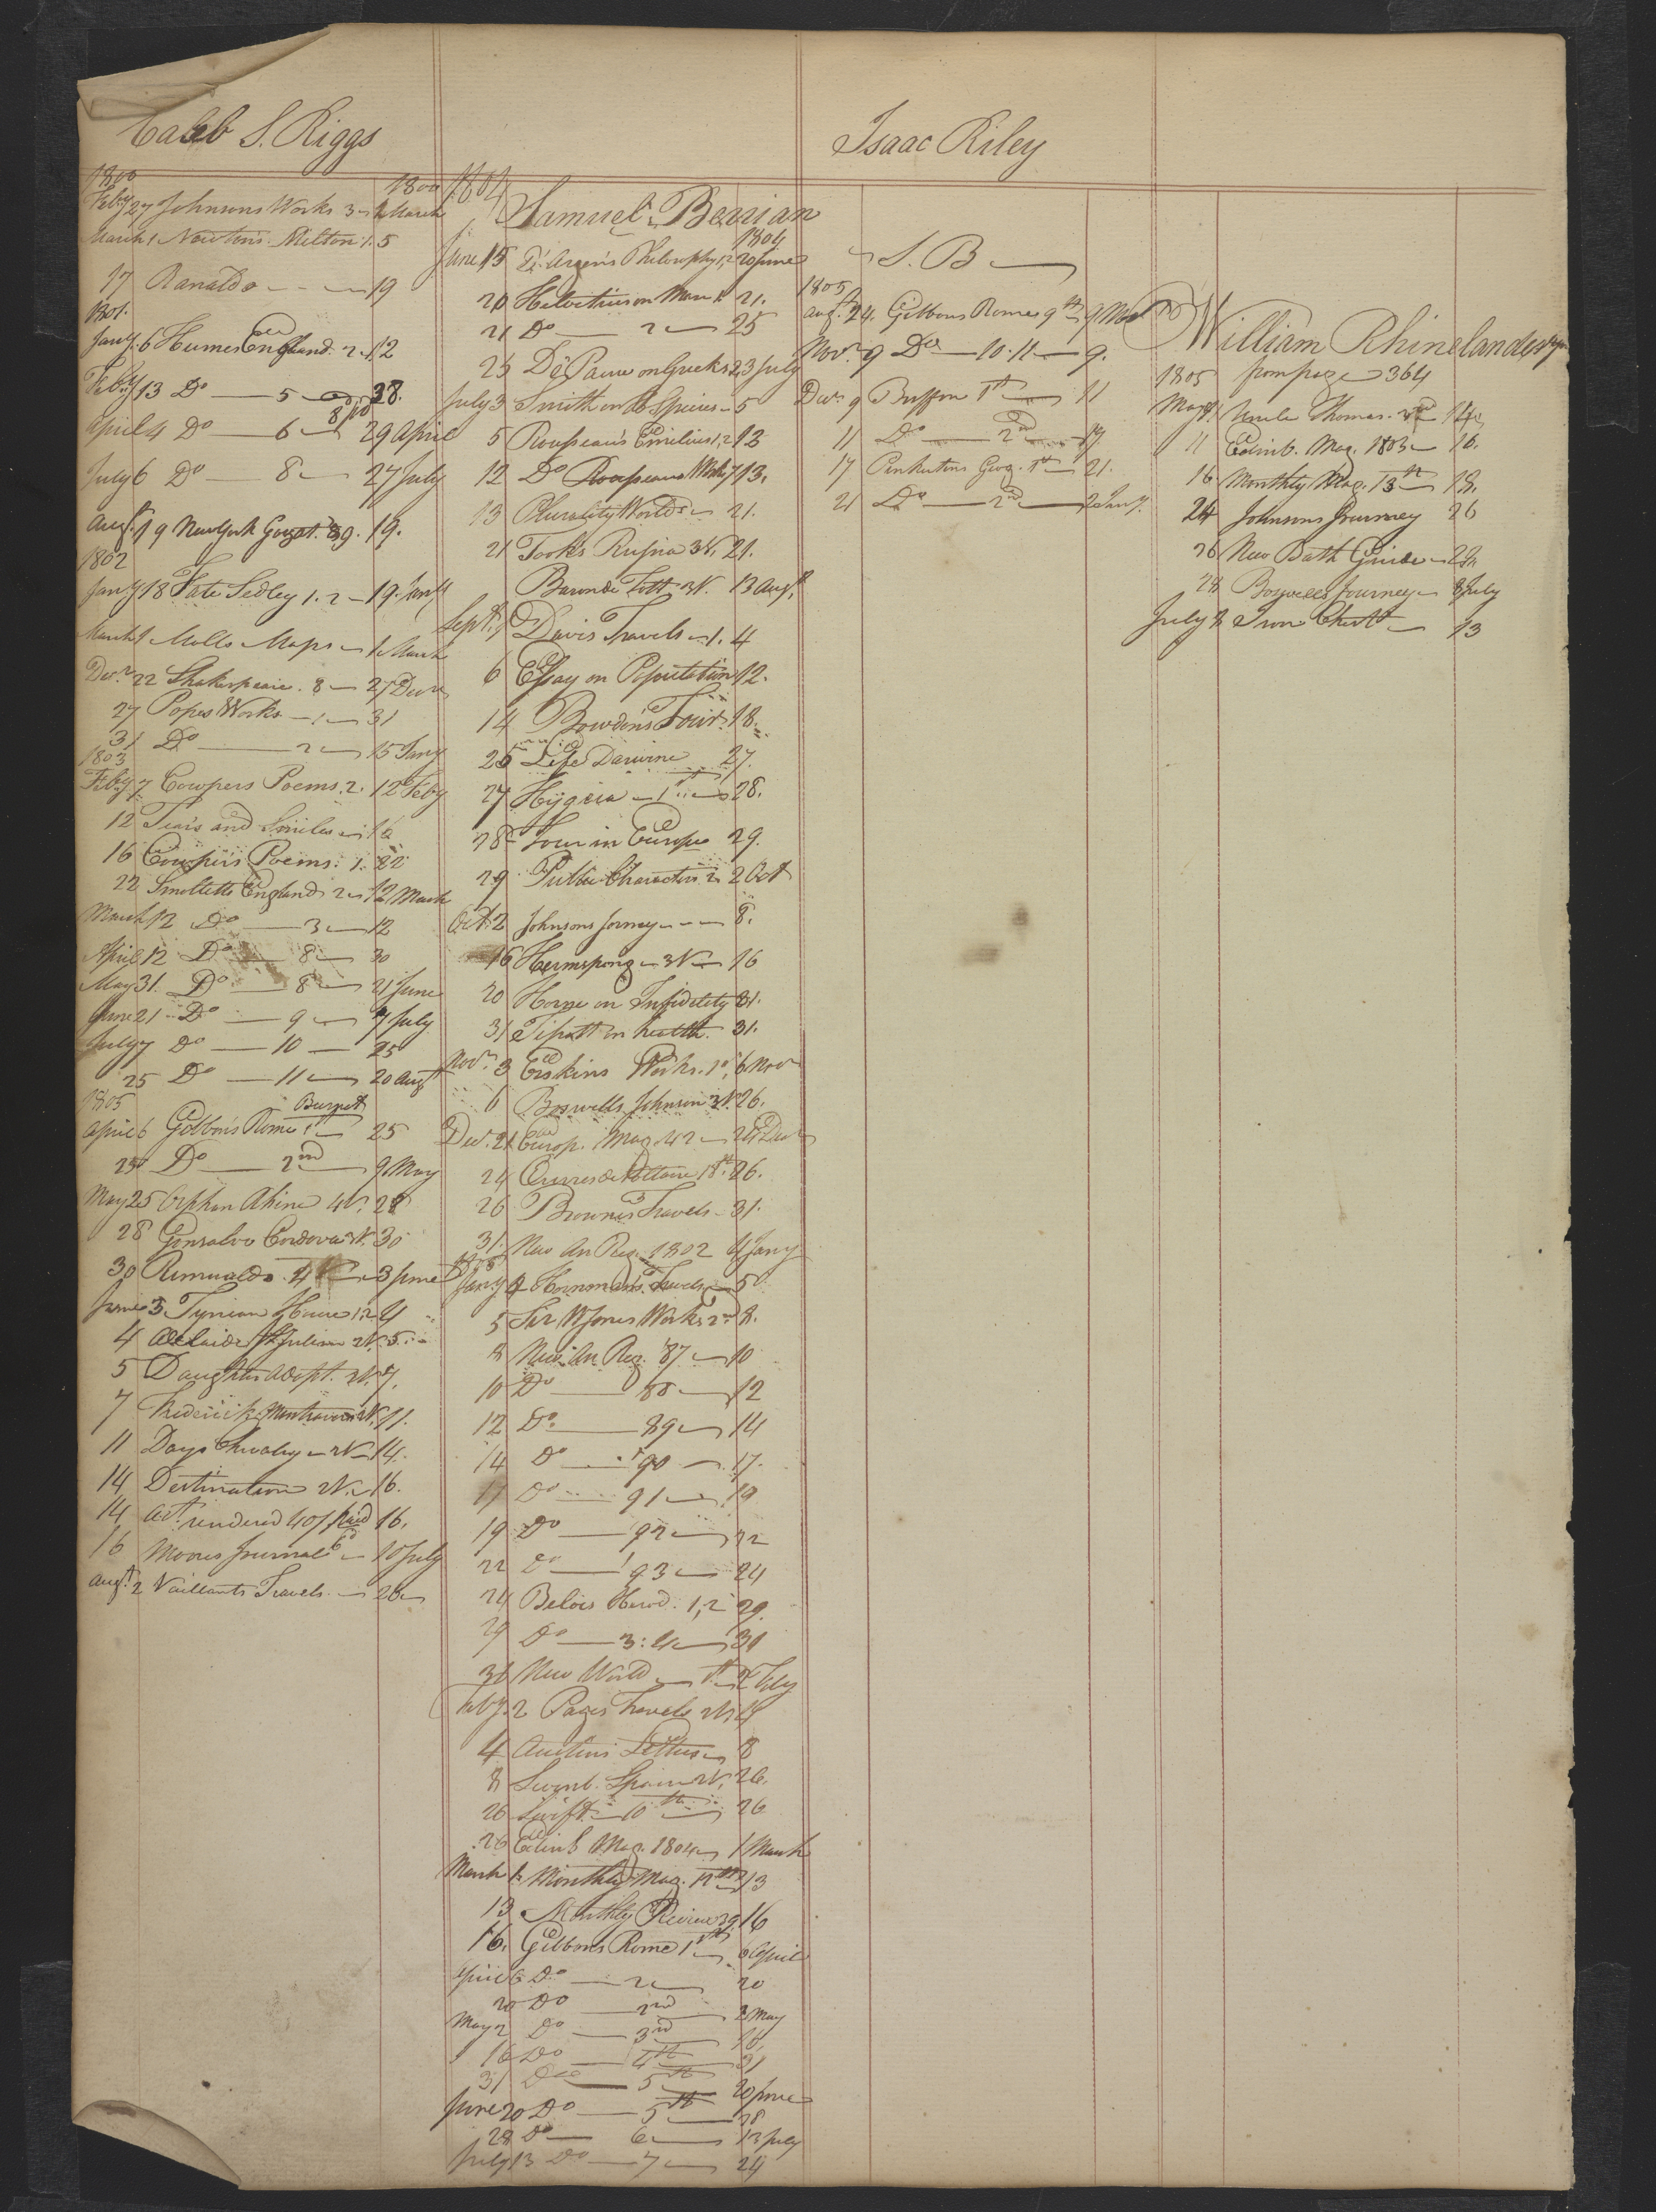 Caleb S. Riggs
1800 1800
Feby 27 Johnsons Works 3 1 March
March 1 Newton's Milton 1. 5
17 Ranaldo 19
1801.
Jany. 6 Humes England 2. 12
Feby 13 Do 5 28.
April 4 Do 6 29 April
July 6 Do 8 27 July
Augt. 19 New York Gazet. 89. 19.
1802
Jany 18 Fate Sedley 1. 2 19 Jany
March 1 Molls Maps 1 March
Decr. 22 Shakespeare. 8 27 Decr
27 Popes Works 1 31
31 Do 2 15 Jany
1803
Feby 7 Cowpers Poems. 2. 12 Feby
12 Tears and Smiles 16
16 Cowpers Poems. 1. 22
22 Smolletts England 2 12 March
March 12 Do 3 12
April 12 Do 8 30
May 31. Do 8 21 June
June 21 Do 9 7 July
July 7 Do 10 25
25 Do 11 20 Augt
1805 Burget
April 6 Gibbons Rome 1st 25
25 Do 2nd 9 May
May 25 Orphan Rhine 4V. 28
28 Gonsalvo Cordova 3V. 30
30 Rimualdo 4V 3 June
June 3 Tynian House 1.2 4
4 Adelaide St Julian 2V. 5
5 Daughter Adopt. 2V. 7.
7 Frederick Montravers 2V. 11.
11 Days Chivalry 2V 14.
14 Destination 2V. 16.
14 Act. rendered 40/ Paid 16.
16 Moores Journal 10 July
Augt. 2 Vaillants Travels 26
1804
Samuel Berrian
1804
June 15 D'Argens Philosophy 1,2 20 June
20 Helvetius on Man 1. 21.
21 Do 2 25
25 De Pauw on Greeks 2, 3 July
July 3 Smith on Species 5
5 Rousseau's Emilius 1,2 12
12 Do Rousseaus Works 7 13.
13 Plurality Worlds 21.
21 Tooks Russia 3V. 21.
Baron de Tott 2V. 13 Augt.
Sept. 1 Davis Travels 1. 4
6 Essay on Population 12.
14 Bowdens Tour 18.
25 Life Darwine 27.
27 Hygeia 1st 28.
28 Tour in Europe 29.
29 Public Characters 2 2 Oct
Oct. 2 Johnsons Jorney 8.
16 Hermsprong 3V 16
20 Horne on Infidelity 31.
31 Tissott on health 31.
Novr. 3 Erskins Works. 1o. 6 Novr
6 Boswells Johnson 3V. 26.
Decr. 21 Europ. Mag. 42 24 Decr
24 Œuvres de Voltaire 18th. 26.
26 Browne's Travels 31.
31. New An Reg. 1802 4 Jany
1805
Jany 4 Hornmans Travels 5
5 Sir W Jones Works 2nd 8.
8 New An Reg. 87 10
10 Do 88 12
12 Do 89 14
14 Do 90 17.
17 Do 91 19
19 Do 92 22
22 Do 93 24
24 Belois Herod. 1,2 29.
29 Do 3: 4 31
31 New World 1st 2 Feby
Feby. 2 Pages Travels 2V. 4
4 Austins Letters 8
8 Swinb. Spain 2V. 26.
26 Swift 10th 26
26 Edinb Mag. 1804 1 March
March 1. Monthly Mag. 17th 13
13 Monthly Review 39. 16
16. Gibbons Rome 1st 6 April
April 6 Do 2 20
20 Do 2nd 2 May
May 2 Do 3rd 16.
16 Do 4th 31
31 Do 5th 20 June
June 20 Do 5th 28
28 Do 6 13 July
July 13 Do 7 24
Isaac Riley
S. B
1805
Augt. 24. Gibbons Rome 9th 9 Nov
Novr. 9 Do 10. 11. 9.
Decr. 9 Buffon 1st 11
11 Do 2nd 17
17 Pinkertons Geog. 1st 21.
21 Do 2nd 2 Jany.
William Rhinelander Jn
1805 from page 364
May 8 Uncle Thomas. 2nd 14.
11 Edinb. Mag. 1803 16.
16 Monthly Mag. 13th 18.
24 Johnsons Journey 26
26 New Bath Guide 28
28 Boswells Journey 8 July
July 8 Iron Chest 13